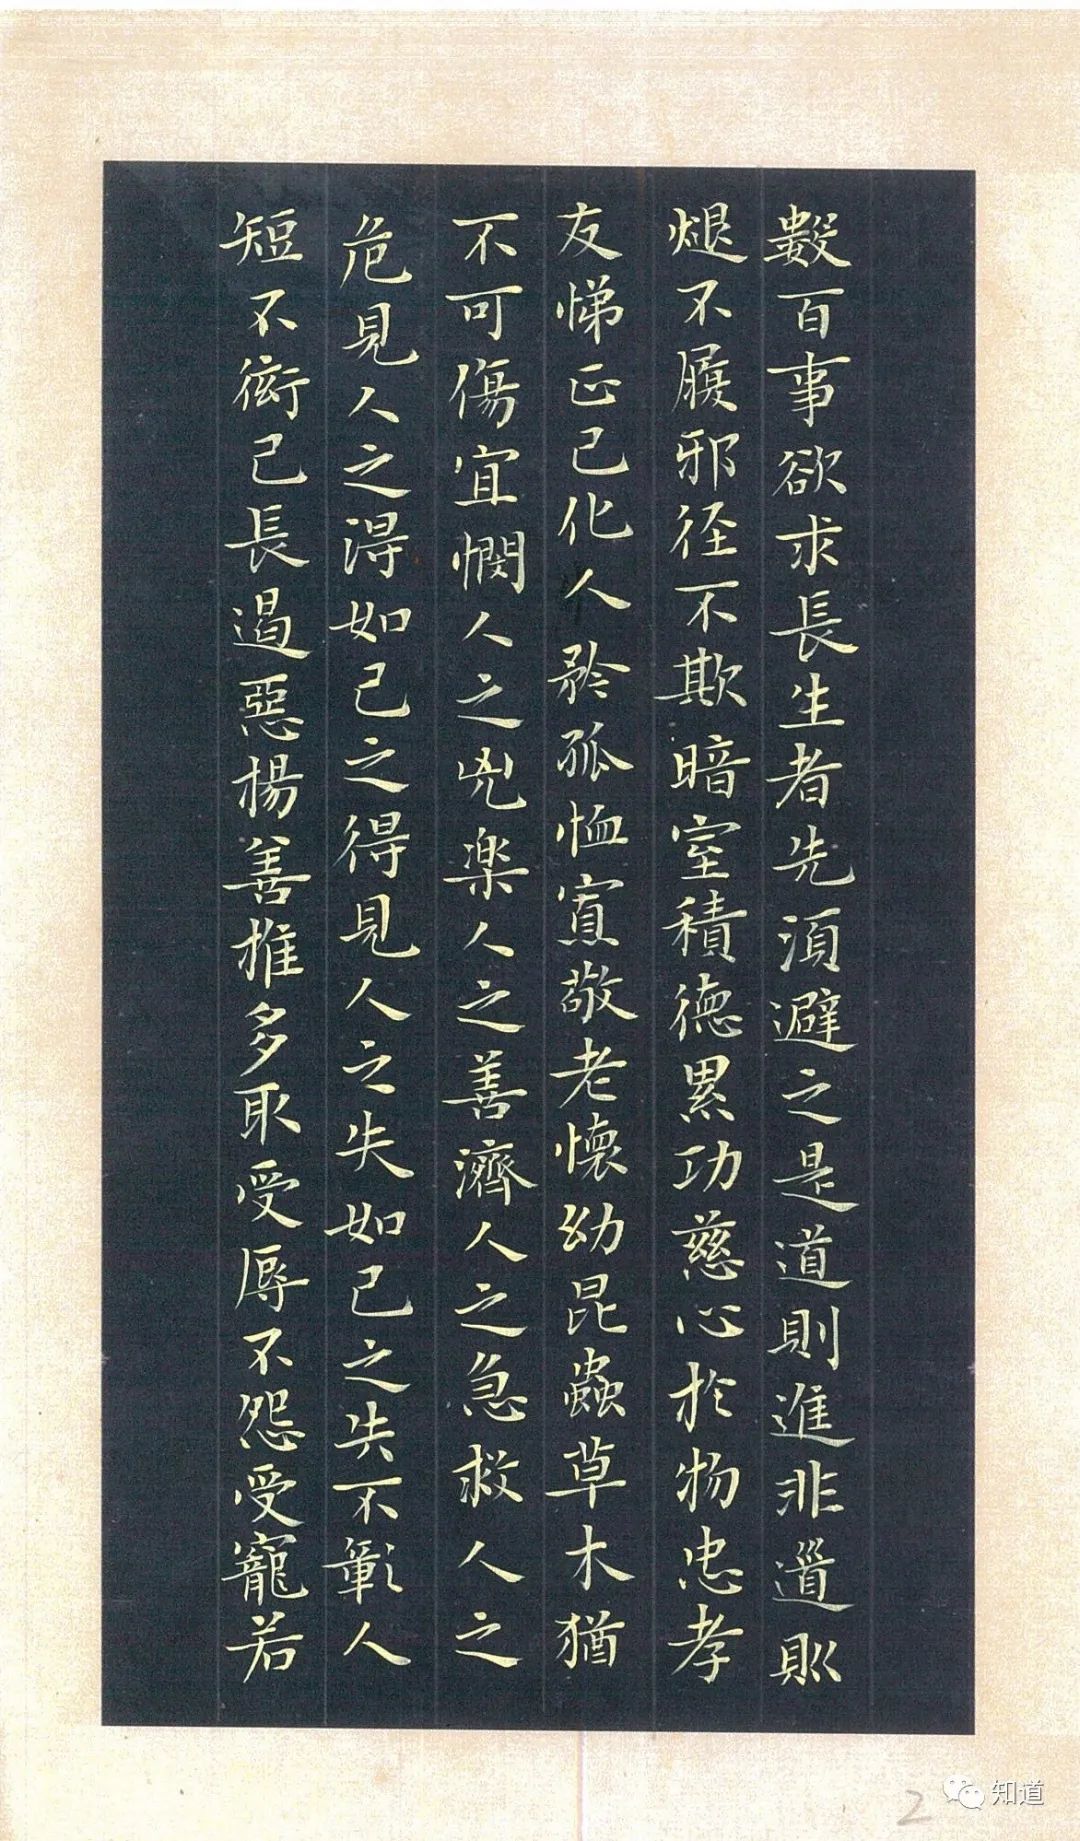 數百事欲求長生者先須避之是道則進非道則
煺不履邪径不欺暗室積德累功慈心於物忠孝
友悌正己化人矜孤恤寡敬老懷幼昆蟲草木猶
不可傷宜憫人之兇楽人之善濟人之急救人之
危見人之淂如己之得見人之失如己之失不彰人
短不衒己長遏惡楊善推多取受辱不怨受寵若
2
知道